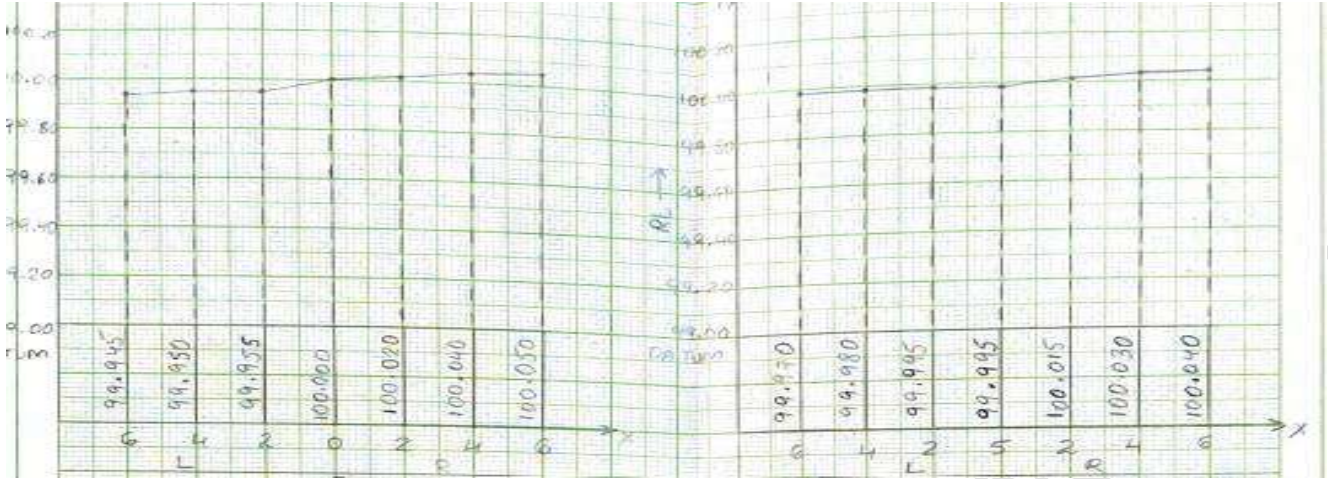 100.20
100.00
99.80
99.60
99.40
99.20
99.00
DATUM
99.945
99.950
99.955
100.000
100.020
100.040
100.050
6 4 2 0 2 4 6 X
L R
100.20
100.00
99.80
99.60
99.40
99.20
99.00
DATUM
RL →
99.970
99.980
99.995
99.995
100.015
100.030
100.040
6 4 2 5 2 4 6 X
L R